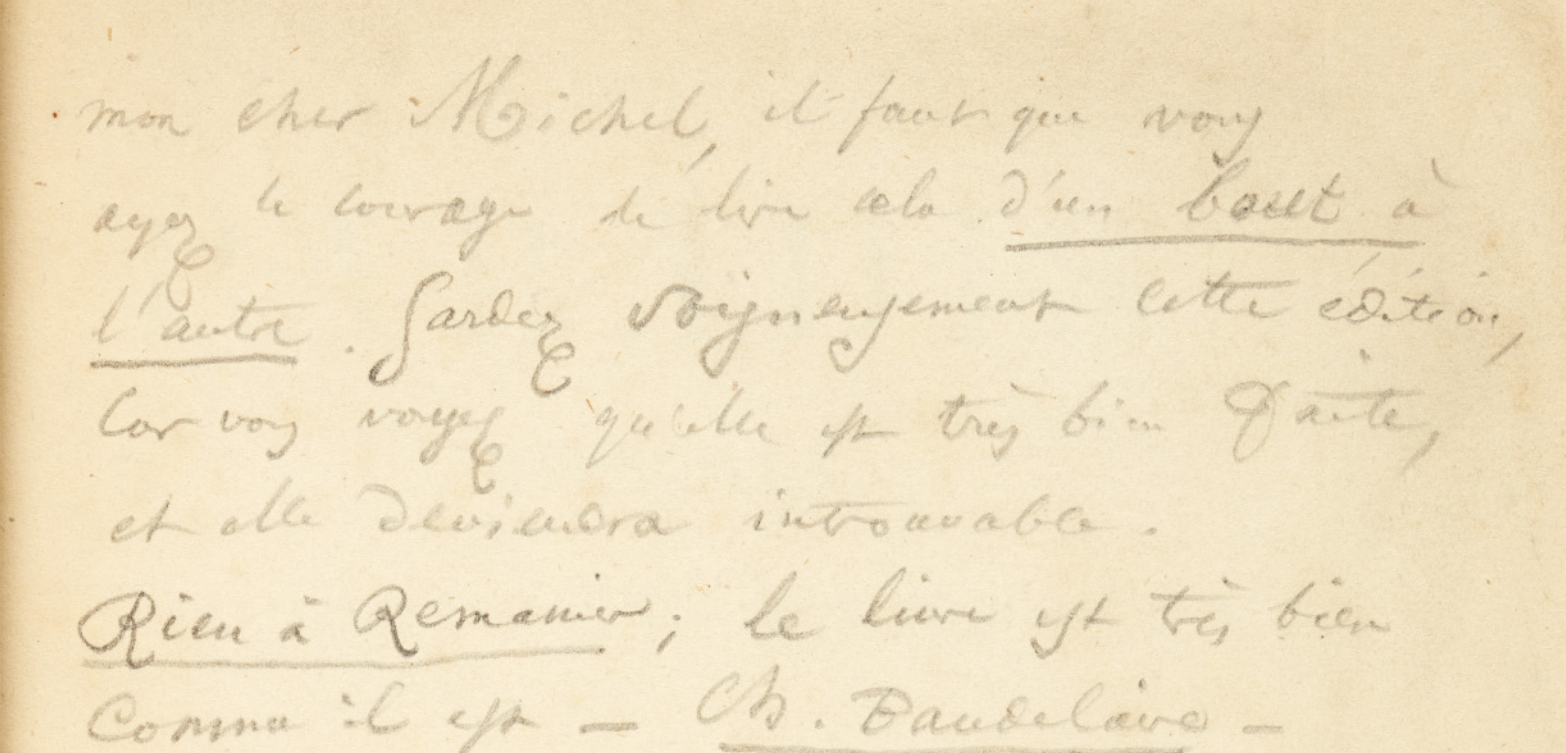 mon cher Michel, il faut que vous
ayez le courage de lire cela d'un bout à
l'autre. Gardez soigneusement cette édition,
Car vous voyez qu'elle est très bien faite,
et elle deviendra introuvable.
Rien à Remanier; le livre est très bien
Comme il est — Ch. Baudelaire —